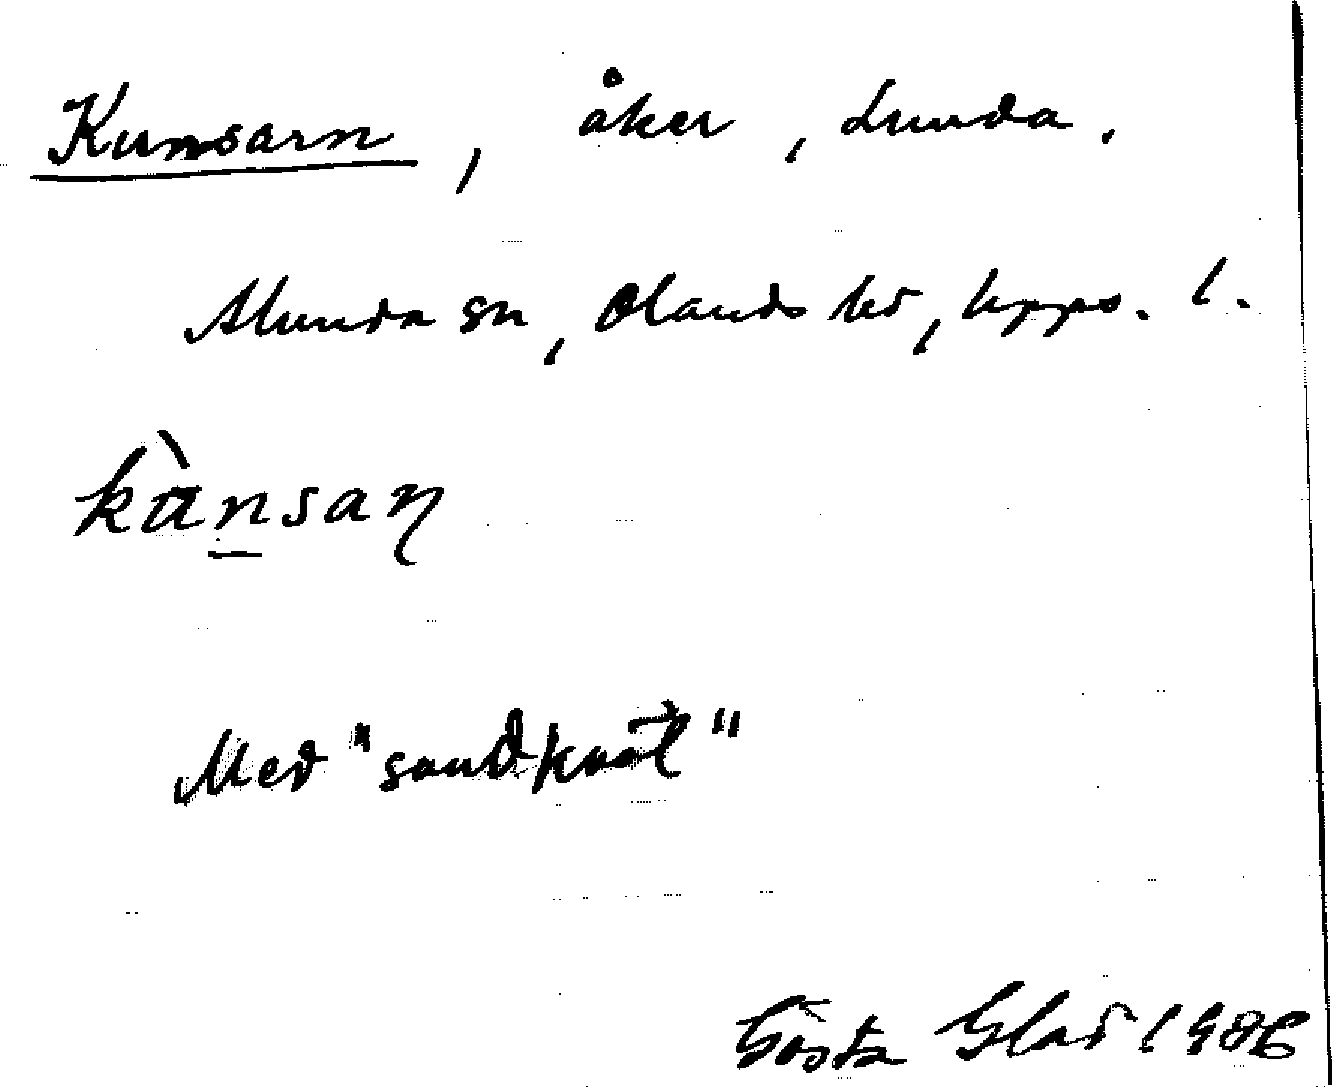 Kunsarn, åker, Lunda.
Alunda sn, Olands hd, Upps. l.
kànsaɳ
Med "sandknöl"
Gösta Glad 1986